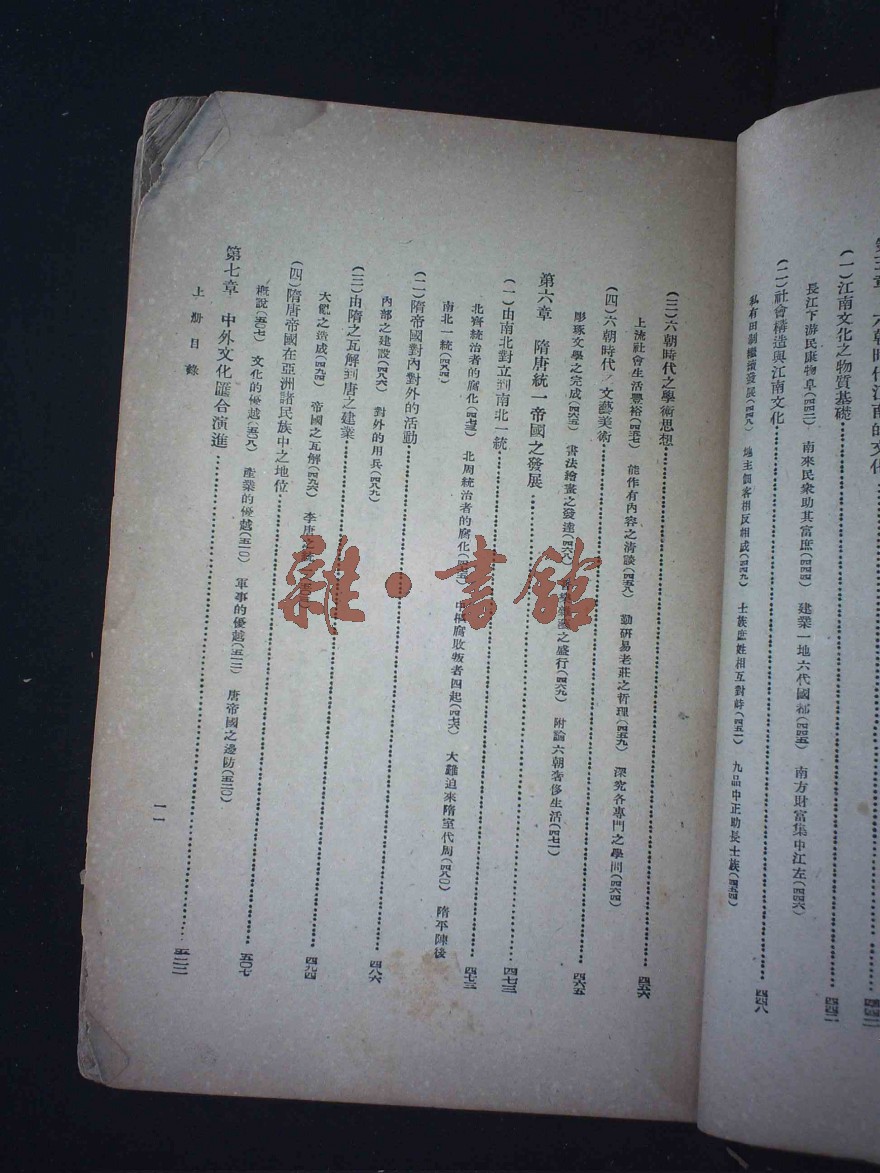 (一)江南文化之物質基礎……四四二
長江下游民康物阜(四四二) 南來民衆助其富庶(四四四) 建業一地六代國都(四四五) 南方財富集中江左(四四六)
(二)社會構造與江南文化……四四八
私有田制繼續發展(四四八) 地主佃客相反相成(四四九) 士族庶姓相互對峙(四五一) 九品中正助長士族(四五四)
(三)六朝時代之學術思想……四五六
上流社會生活豐裕(四五七) 能作有內容之清談(四五八) 勤研易老莊之哲理(四五九) 深究各專門之學問(四六四)
(四)六朝時代之文藝美術……四六五
彫琢文學之完成(四六五) 書法繪畫之發達(四六八) 之盛行(四六九) 附論六朝奢侈生活(四七一)
第六章 隋唐統一帝國之發展……四七三
(一)由南北對立到南北一統……四七三
北齊統治者的腐化(四七三) 北周統治者的腐化(四七五) 中樞腐敗叛者四起(四七六) 大難迫來隋室代周(四八〇) 隋平陳後
南北一統(四八四)
(二)隋帝國對內對外的活動……四八六
內部之建設(四八六) 對外的用兵(四八九)
(三)由隋之瓦解到唐之建業……四九四
大亂之造成(四九四) 帝國之瓦解(四九六) 李唐之
(四)隋唐帝國在亞洲諸民族中之地位……五〇七
概說(五〇七) 文化的優越(五〇八) 產業的優越(五一〇) 軍事的優越(五一二) 唐帝國之邊防(五二〇)
第七章 中外文化匯合演進……五二二
上册目錄
一一
雜·書館